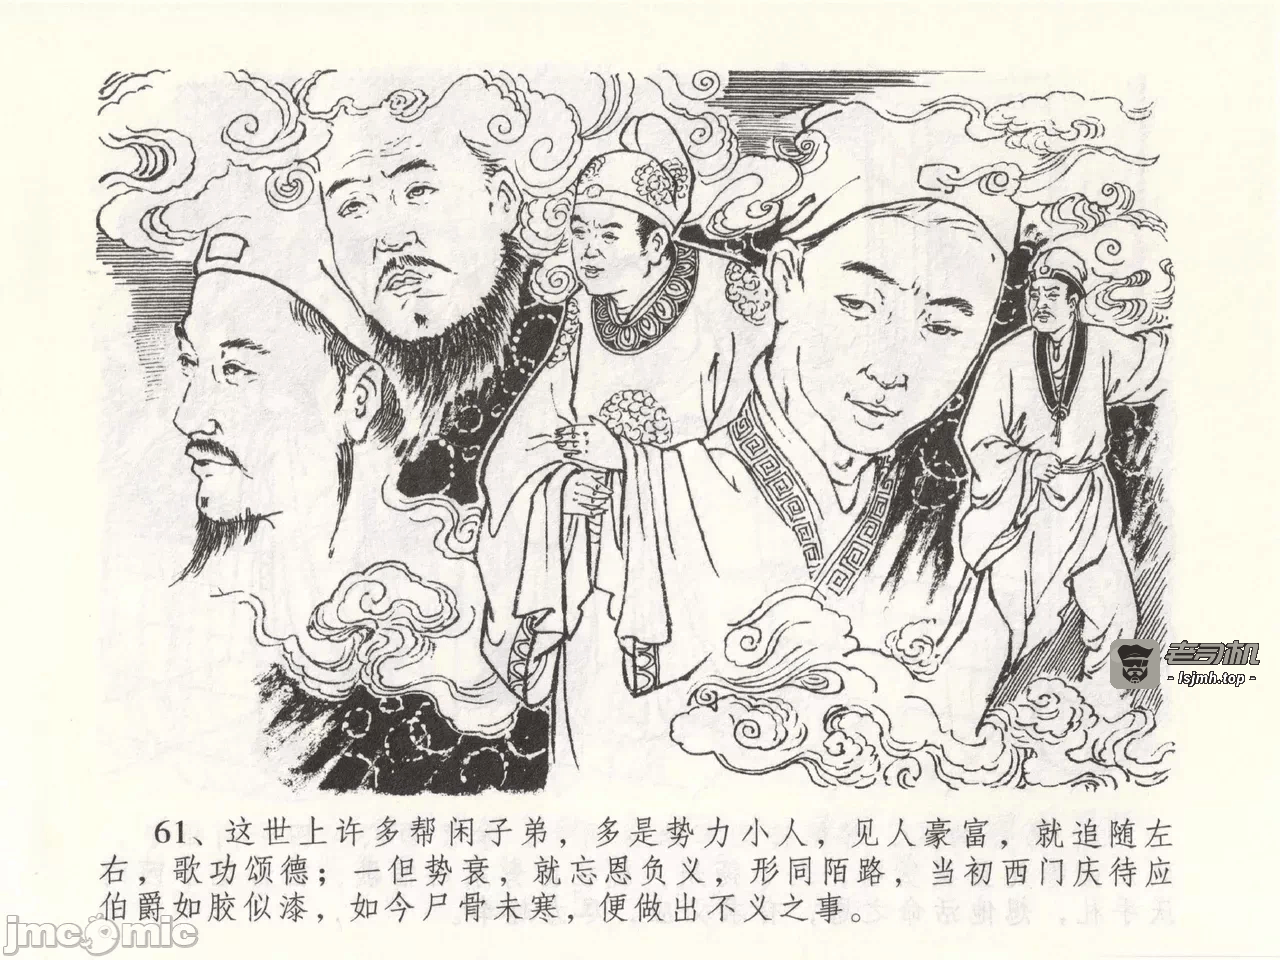 老司机
- lsjmh.top -
61、这世上许多帮闲子弟，多是势力小人，见人豪富，就追随左
右，歌功颂德；一但势衰，就忘恩负义，形同陌路，当初西门庆待应
伯爵如胶似漆，如今尸骨未寒，便做出不义之事。
jmcomic